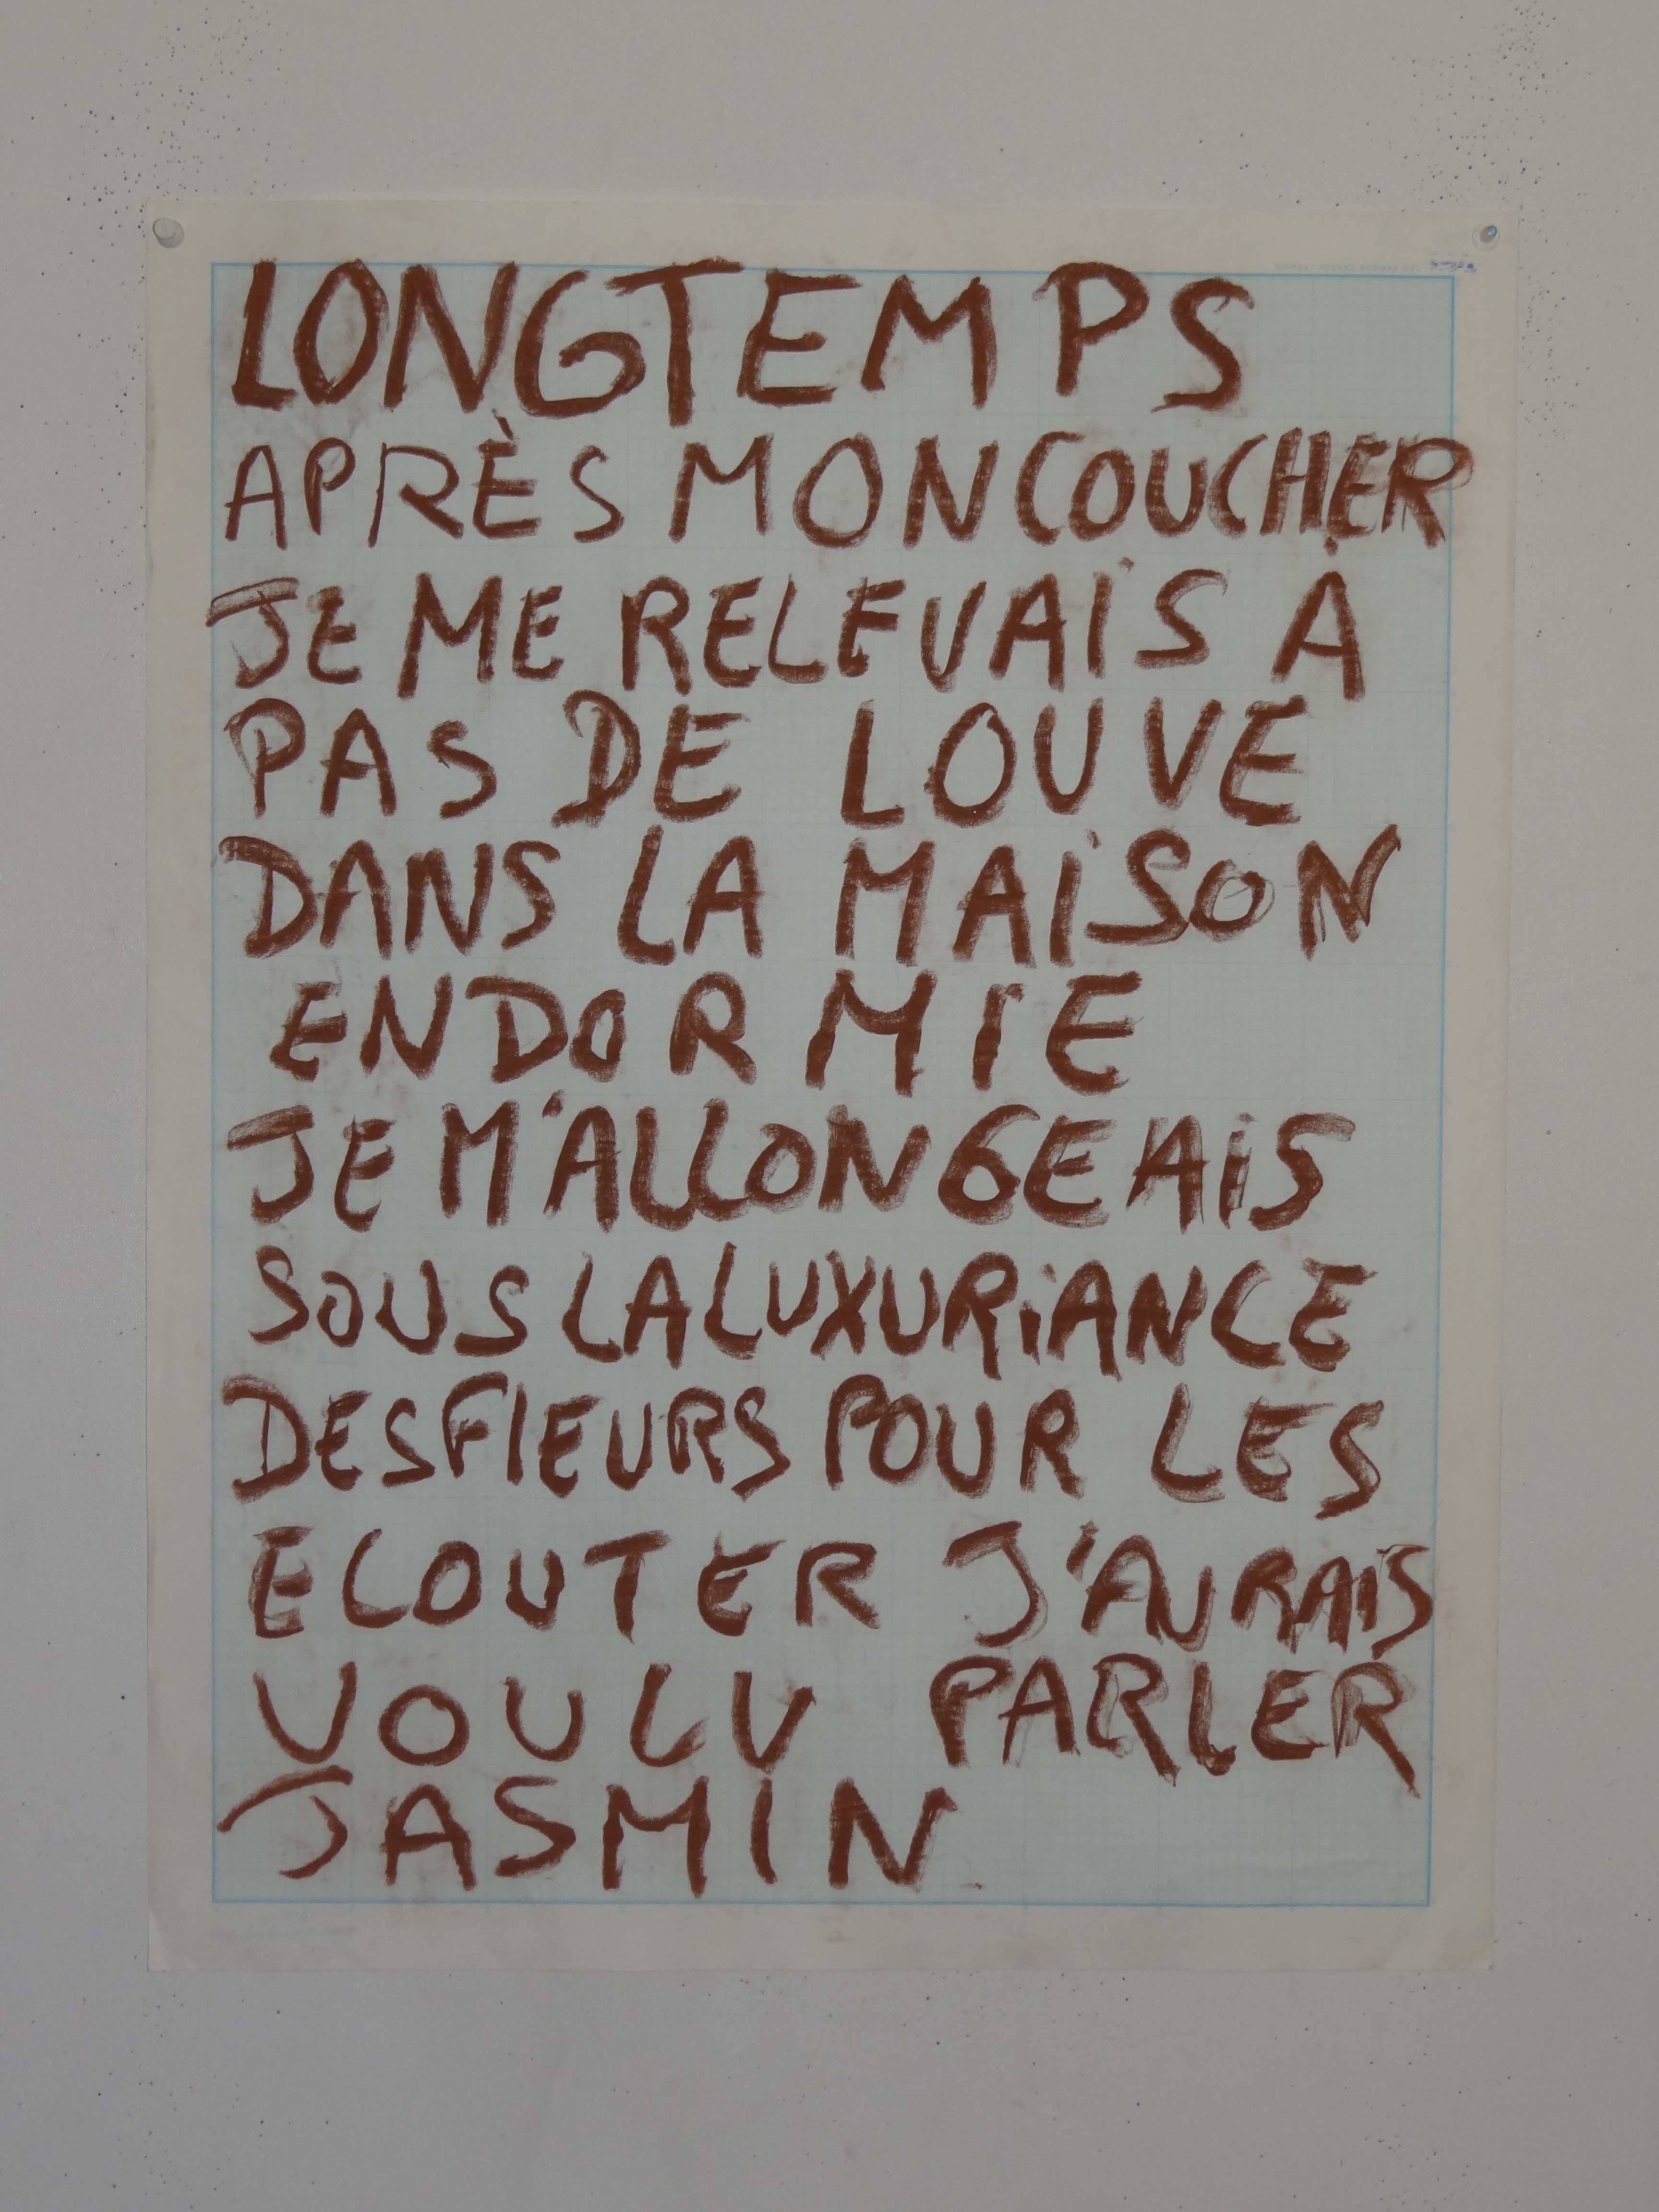 LONGTEMPS
APRÈS MON COUCHER
JE ME RELEVAIS À
PAS DE LOUVE
DANS LA MAISON
ENDORMIE
JE M'ALLONGEAIS
SOUS LA LUXURIANCE
DES FlEURS POUR LES
ECOUTER J'AURAIS
VOULU PARLER
JASMIN